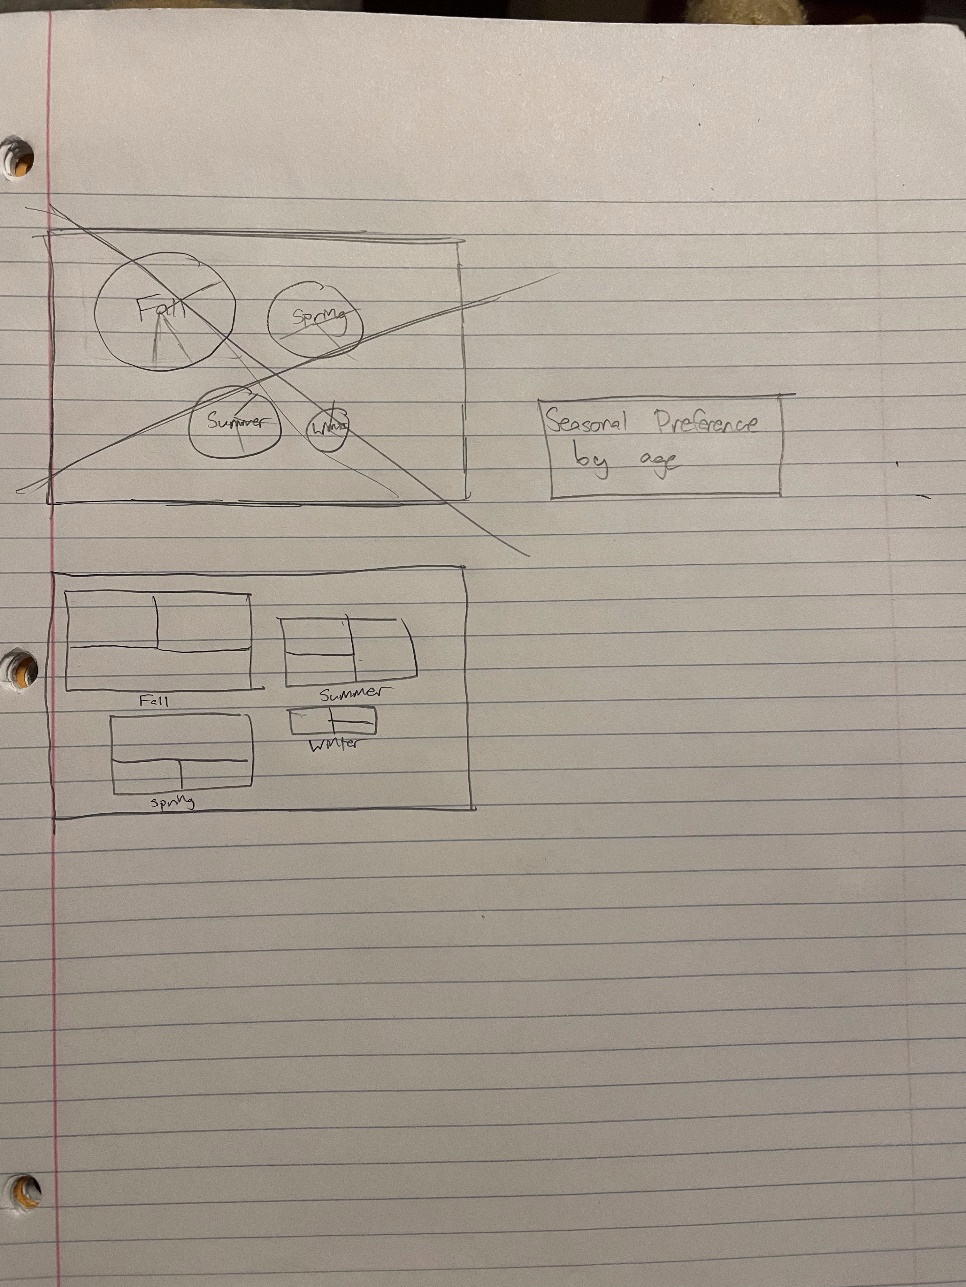 Fall
Spring
Summer
Winter
Seasonal Preference
by age
Fall
Summer
Winter
Spring